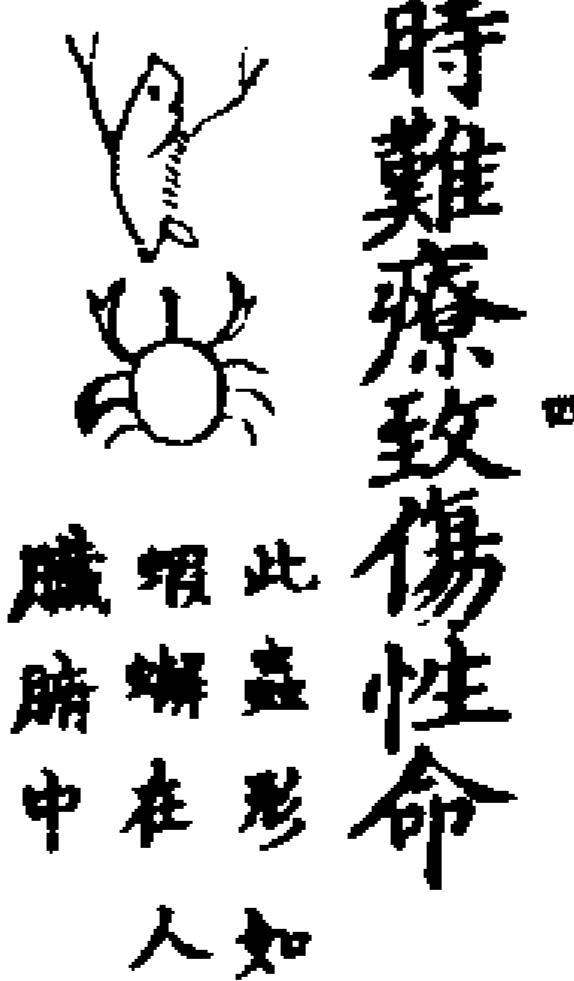 時難療致傷性命
此蟲形如
蝦蠏在人
臟腑中